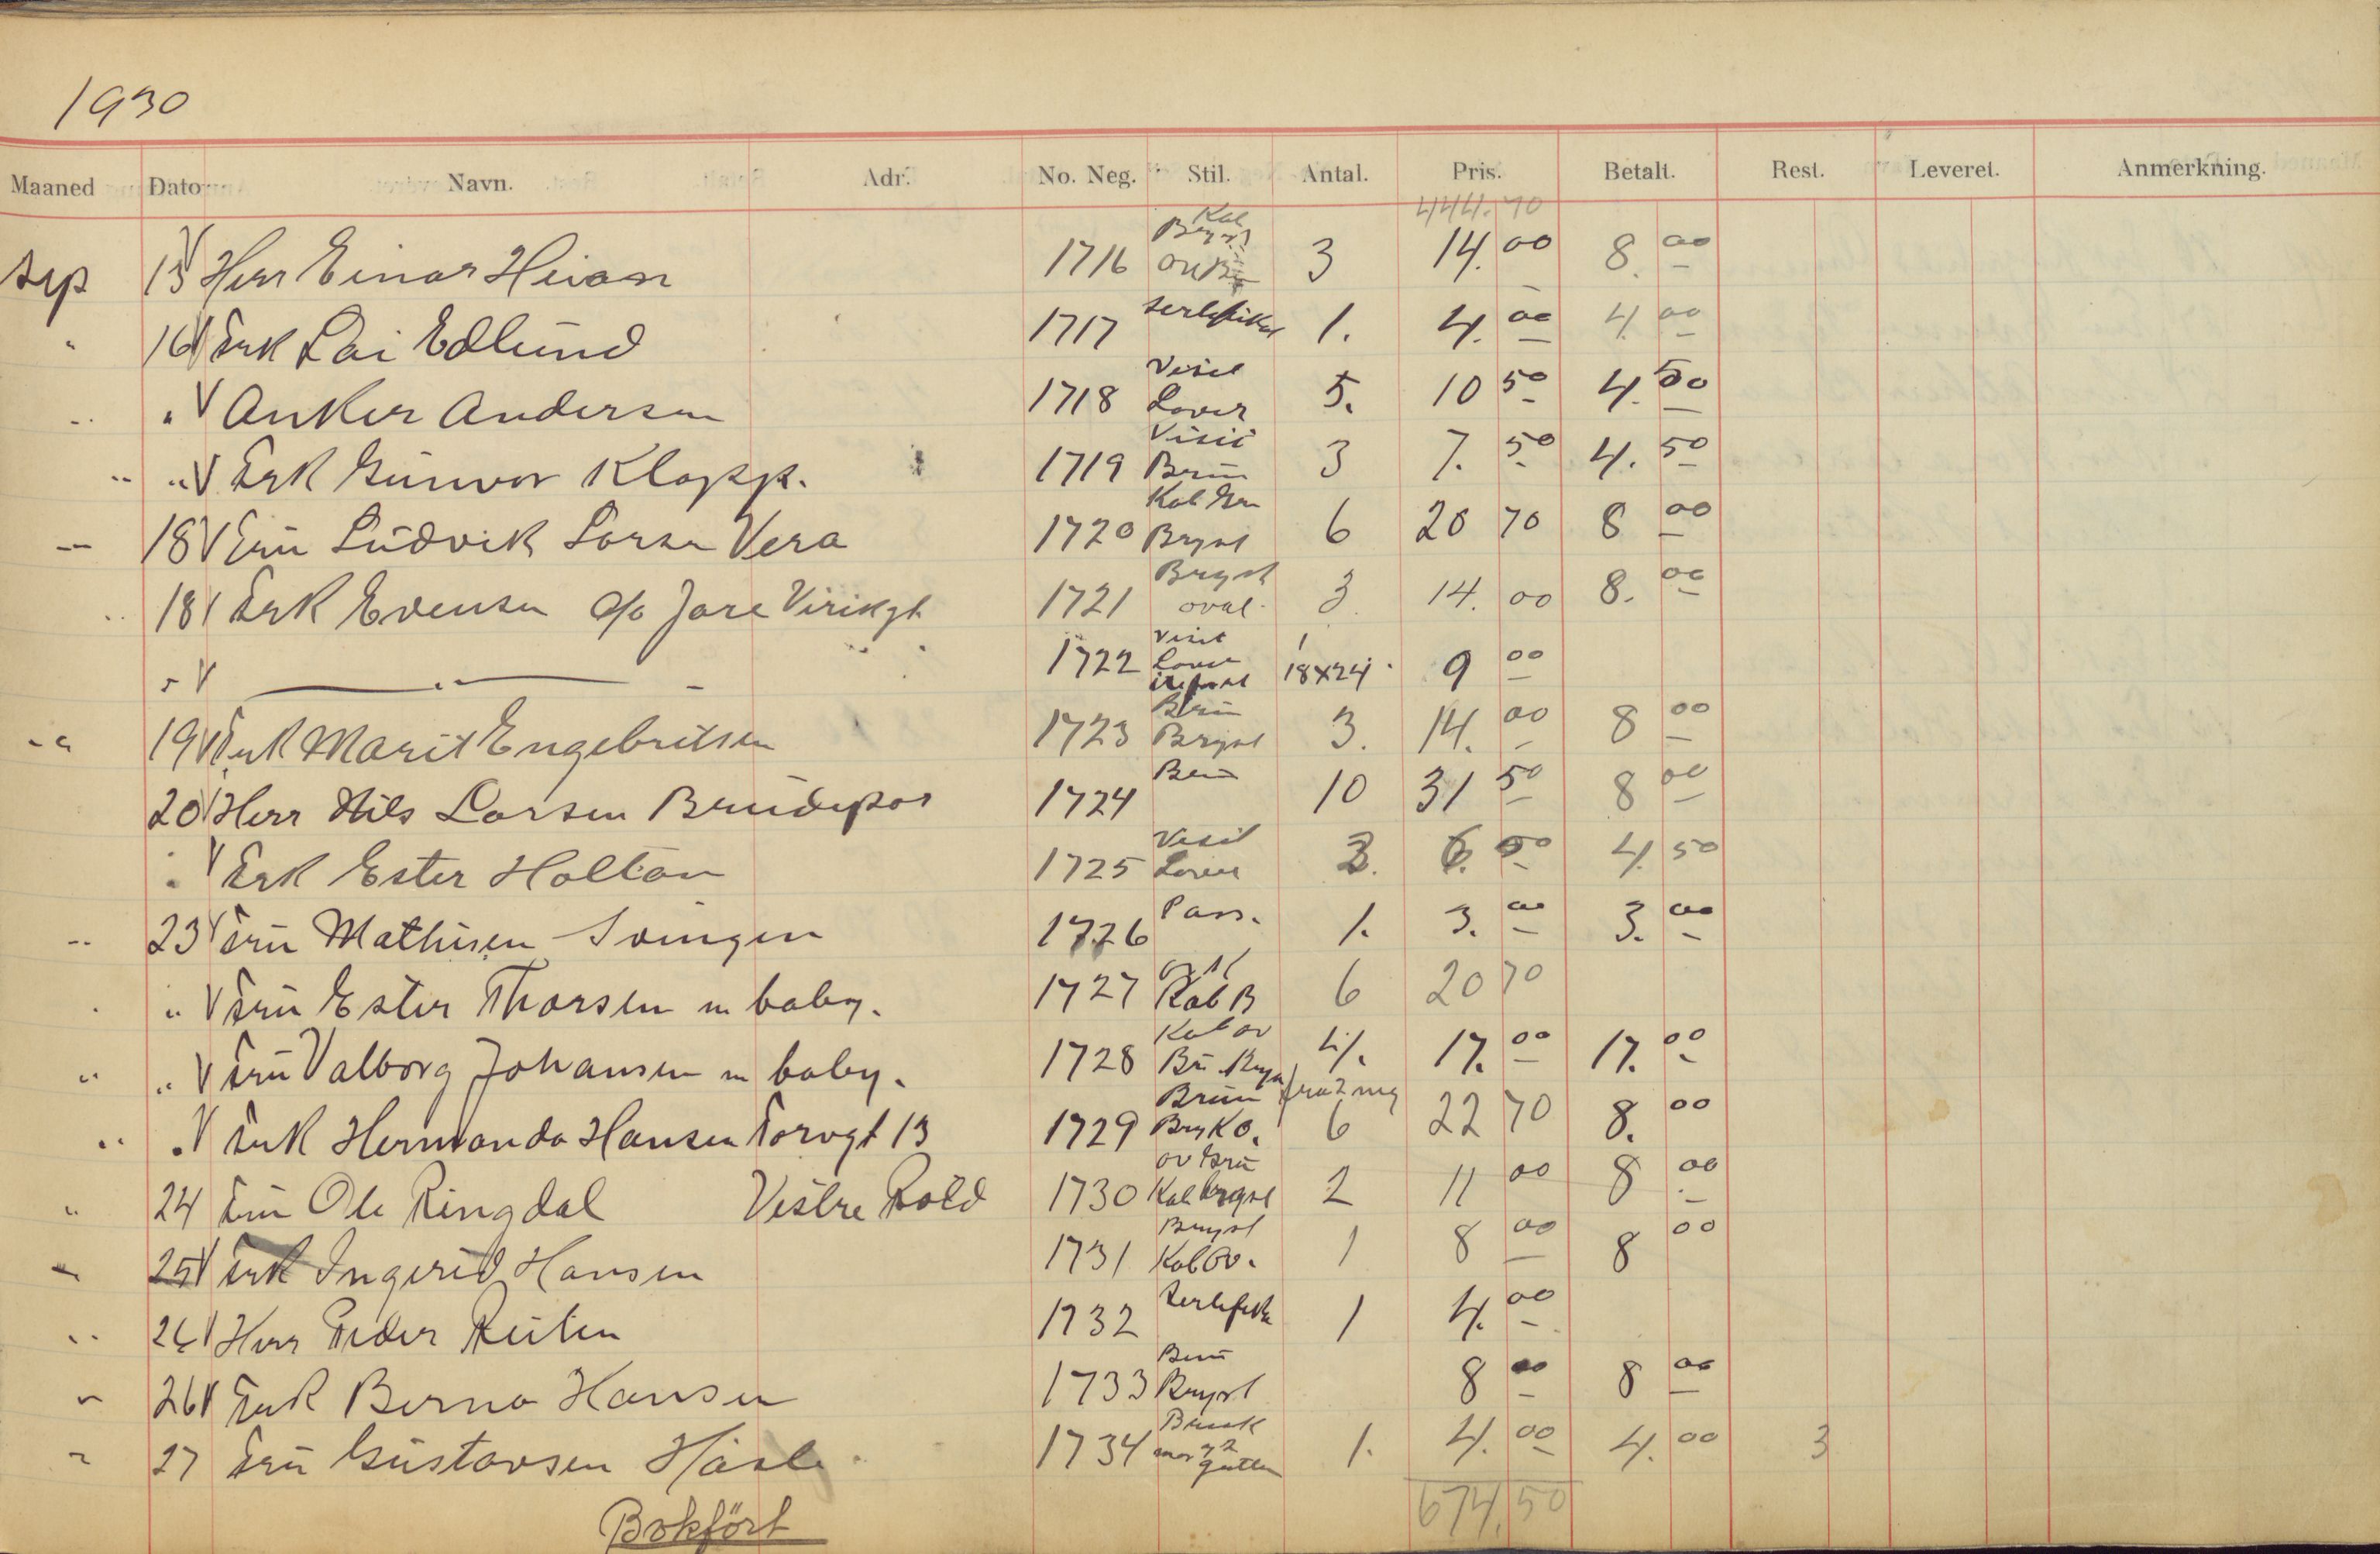 1930
Maaned Dato Navn. Adr. No. Neg. Stil. Antal. Pris. Betalt. Rest. Leveret. Anmerkning.
444. 70
Kab
Sep 15 V Herr Einar Heian 1716 Bryst 3 14. 00 8. 00
" 16 V Frk Lai Edlund 1717 Sertifikat 1. 4. 00 4. 00
Visit
" " V Anker Andersen 1718 5. 10 50 4. 50
Visit
" " V Frk Gunvor Klopp. 1719 Brun 3 7. 50 4. 50
Kab
" 18 V Fru Ludvik Larsen Vera 1720 Bryst 6 20 70 8 00
Bryst
" 18 V Frk Evensen c/o Jare Virikgt 1721 oval. 3 14. 00 8. 00
Visit 1
" V — " — 1722 18x24 9 00
Brun
" 19 V Frk Marit Engebritsen 1723 Bryst 3. 14. 00 8 00
20 V Herr Nils Larsen Brudepar 1724 Brun 10 31 50 8 00
Visit
" V Frk Ester Holtan 1725 6. 00 4. 50
" 23 V Fru Mathisen Svingen 1726 Pass. 1. 3. 00 3. 00
" " V Fru Ester Thorsen m baby. 1727 Kab B 6 20 70
Kab ov
" " V Fru Valborg Johansen m baby. 1728 Br. Brys 4. 17. 00 17. 00
Brun fra 2 neg
" " V Frk Hermanda Hansen Torvgt 13 1729 Bry K O. 6 22 70 8. 00
ov Brü
" 24 Fru Ole Ringdal Vestre Rold 1730 Kab bryst 2 11 00 8 00
Bryst
" 25 V Frk Ingerid Hansen 1731 Kab Ov. 1 8 00 8 00
" 26 V Herr Peder Reilen 1732 1 4. 00
Brun
" 26 V Frk Berna Hansen 1733 Bryst 8 00 8 00
" 27 Fru Gustavsen Håsle 1734 1. 4. 00 4. 00 3
674. 50
Bokført